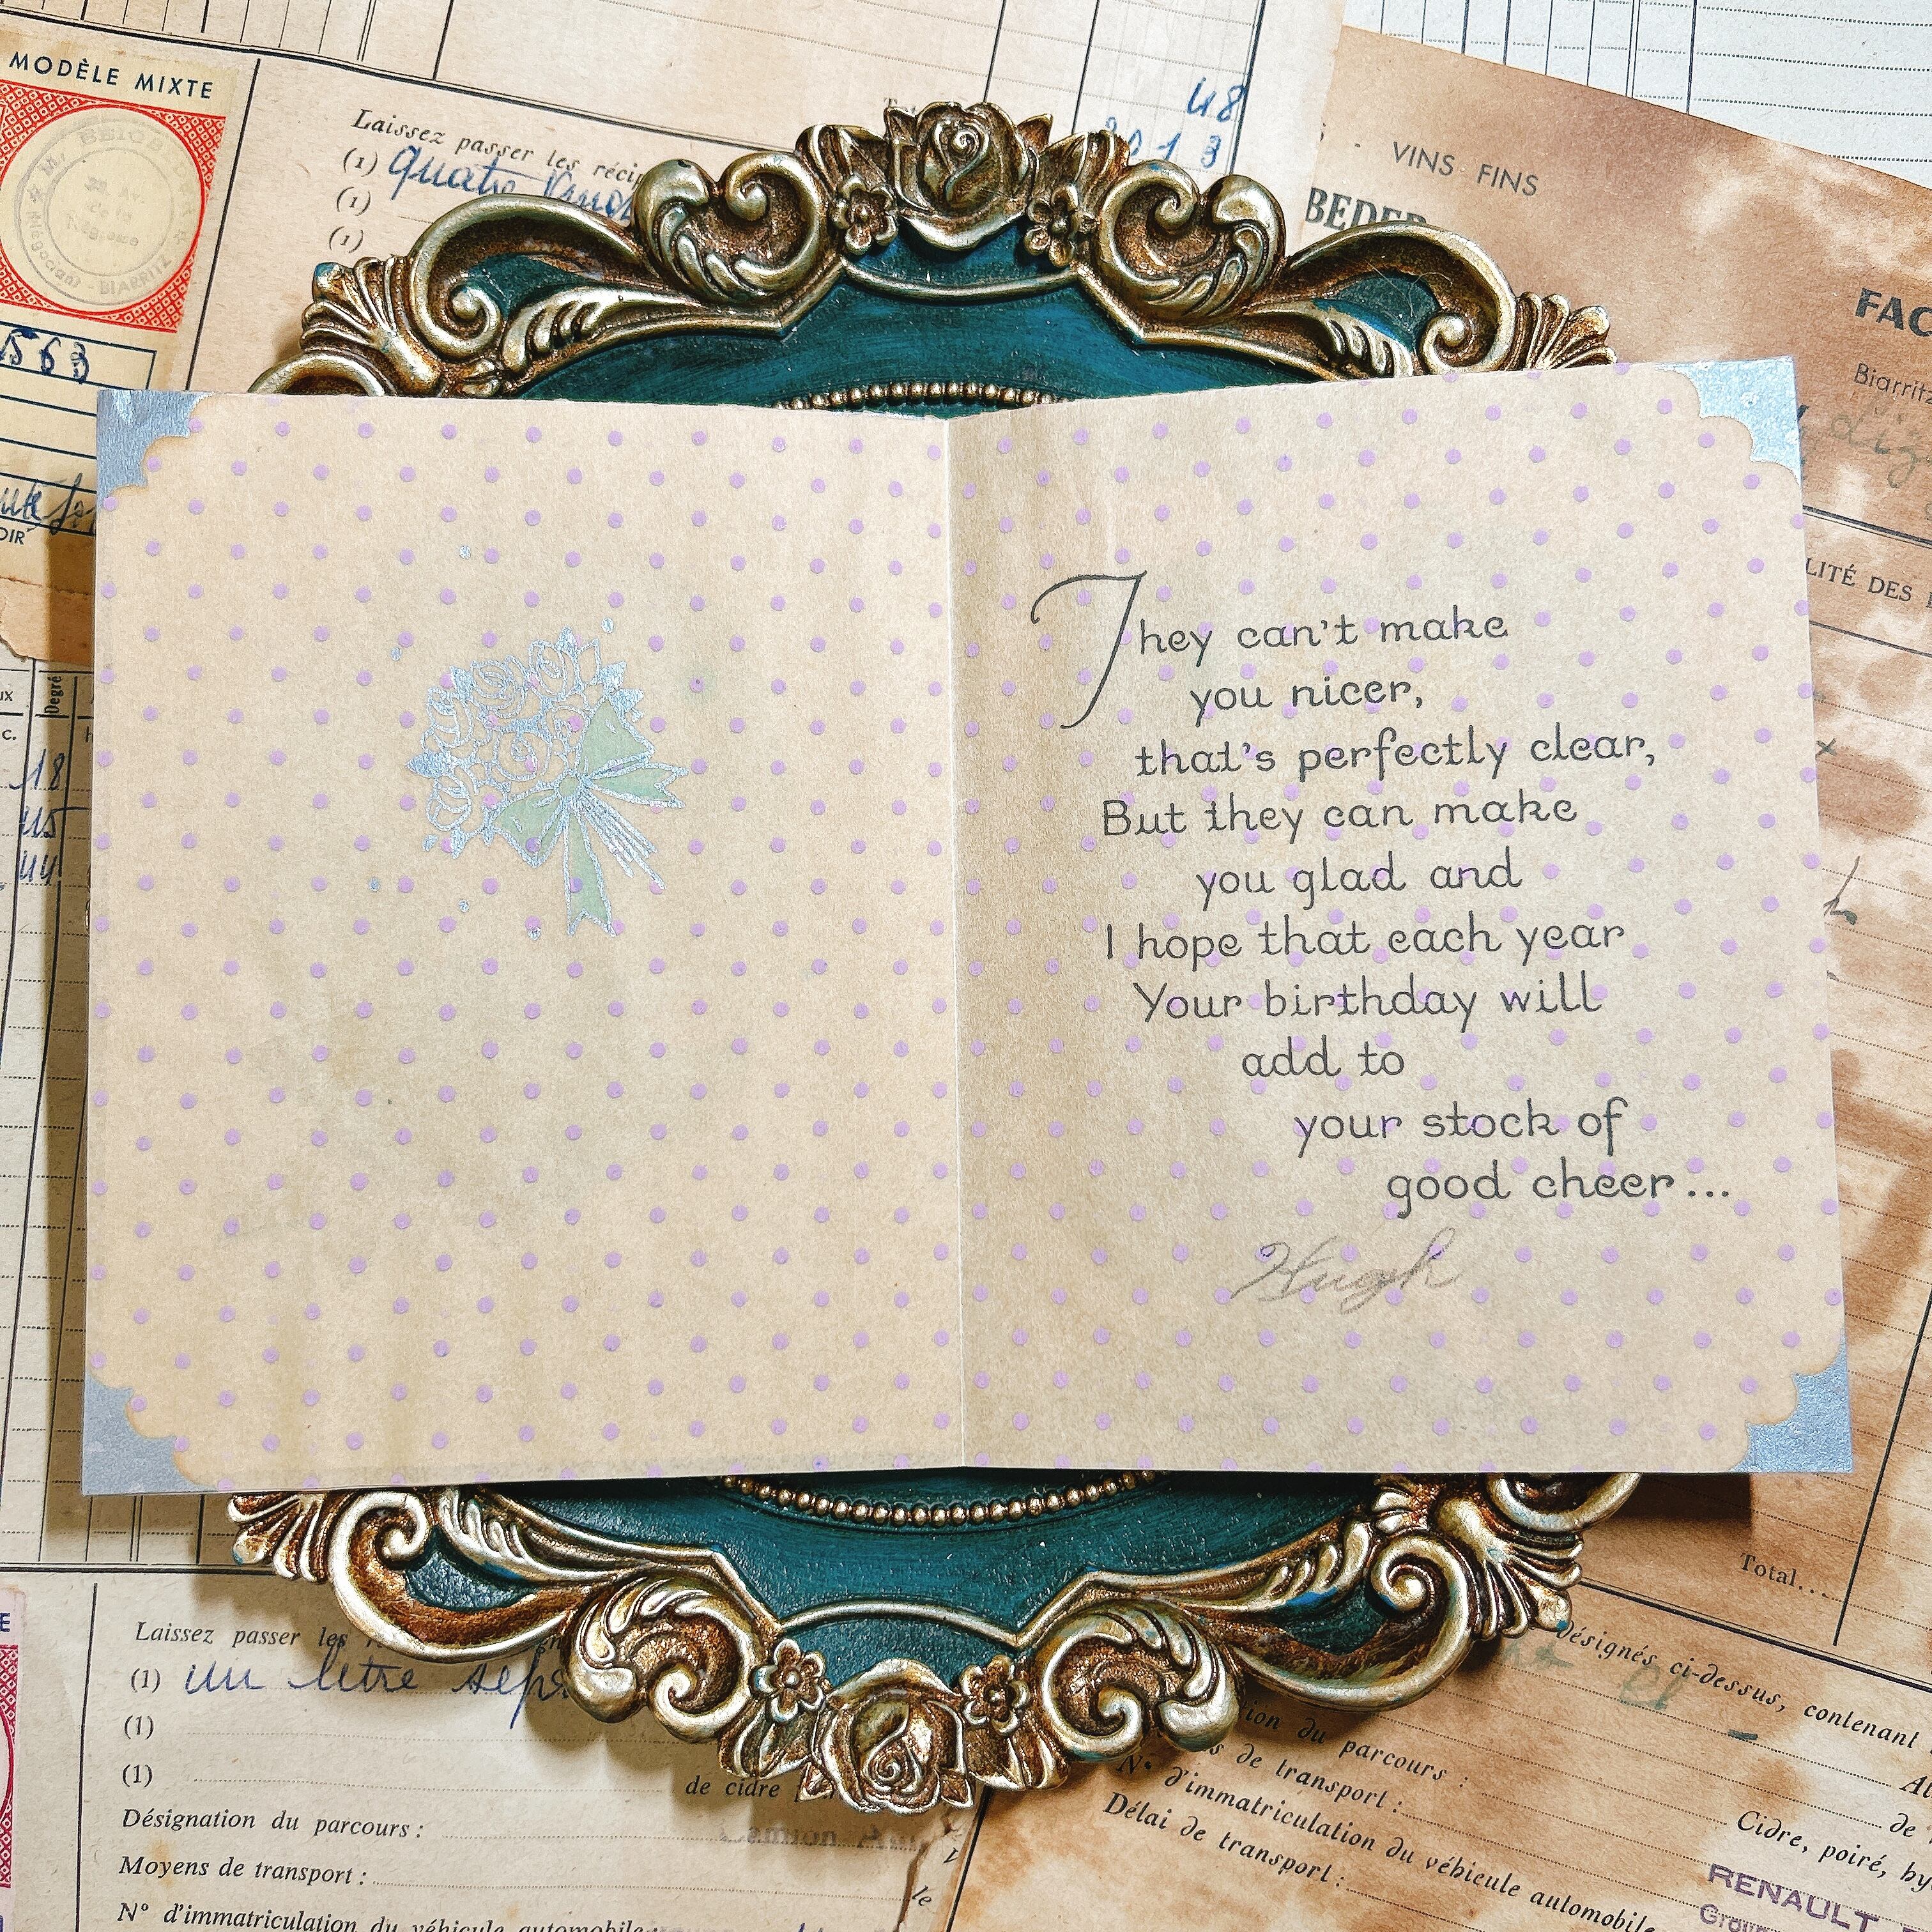 MODÈLE MIXTE
BIARRITZ
563
OIR
Degré
C.
18
45
44
Laissez passer les
(1) quatre
(1)
(1)
48
VINS FINS
FAC
Biarritz
LITÉ DES
They can't make
you nicer,
that's perfectly clear,
But they can make
you glad and
I hope that each year
Your birthday will
add to
your stock of
good cheer...
Hugh
Total...
E
Laissez passer les
(1) un litre
(1)
(1)
de cidre
Désignation du parcours :
Moyens de transport :
le
N° d'immatriculation du véhicule automobile
désignés ci-dessus, contenant
ion du parcours :
s de transport :
N° d'immatriculation du véhicule automobile
Délai de transport :
de
Cidre, poiré, hy
RENAULT